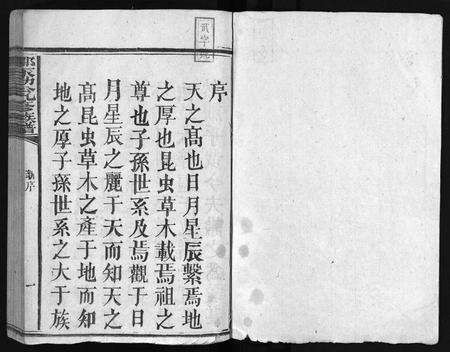 序
天之髙也日月星辰繫焉地
之厚也昆虫草木載焉祖之
尊也子孫世系及焉觀于日
月星辰之麗于天而知天之
髙昆虫草木之產于地而知
地之厚子孫世系之大于族
族譜
序
一